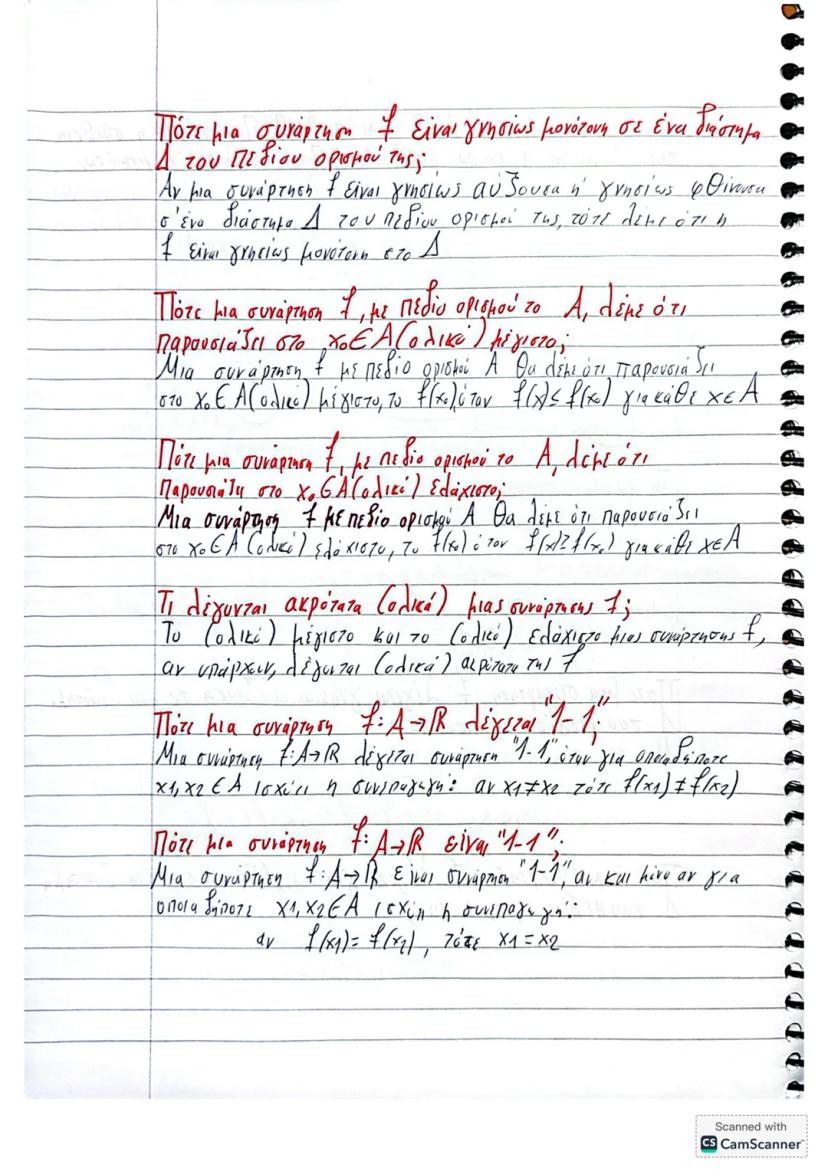 Πότε μια συνάρτηση f είναι γνησίως μονότονη σε ένα διάστημα
Δ του πεδίου ορισμού της;
Αν μια συνάρτηση f είναι γνησίως αύξουσα ή γνησίως φθίνουσα
σ' ένα διάστημα Δ του πεδίου ορισμού της, τότε λέμε ότι η
f είναι γνησίως μονότονη στο Δ
Πότε μια συνάρτηση f, με πεδίο ορισμού το A, λέμε ότι
παρουσιάζει στο x₀∈A (ολικό) μέγιστο;
Μια συνάρτηση f με πεδίο ορισμού A θα λέμε ότι παρουσιάζει
στο x₀∈A (ολικό) μέγιστο, το f(x₀) όταν f(x)≤f(x₀) για κάθε x∈A
Πότε μια συνάρτηση f, με πεδίο ορισμού το A, λέμε ότι
παρουσιάζει στο x₀∈A (ολικό) ελάχιστο;
Μια συνάρτηση f με πεδίο ορισμού A θα λέμε ότι παρουσιάζει
στο x₀∈A (ολικό) ελάχιστο, το f(x₀) όταν f(x)≥f(x₀) για κάθε x∈A
Τι λέγονται ακρότατα (ολικά) μιας συνάρτησης f;
Το (ολικό) μέγιστο και το (ολικό) ελάχιστο μιας συνάρτησης f,
αν υπάρχων, λέγονται (ολικά) ακρότατα της f
Πότε μια συνάρτηση f: A→ℝ λέγεται "1-1";
Μια συνάρτηση f: A→ℝ λέγεται συνάρτηση "1-1", όταν για οποιαδήποτε
x1, x2 ∈ A ισχύει η συνεπαγωγή: αν x1≠x2 τότε f(x1)≠f(x2)
Πότε μια συνάρτηση f: A→ℝ είναι "1-1";
Μια συνάρτηση f: A→ℝ είναι συνάρτηση "1-1", αν και μόνο αν για
οποιαδήποτε x1, x2∈A ισχύει η συνεπαγωγή:
αν f(x1)=f(x2), τότε x1=x2
Scanned with
CS CamScanner